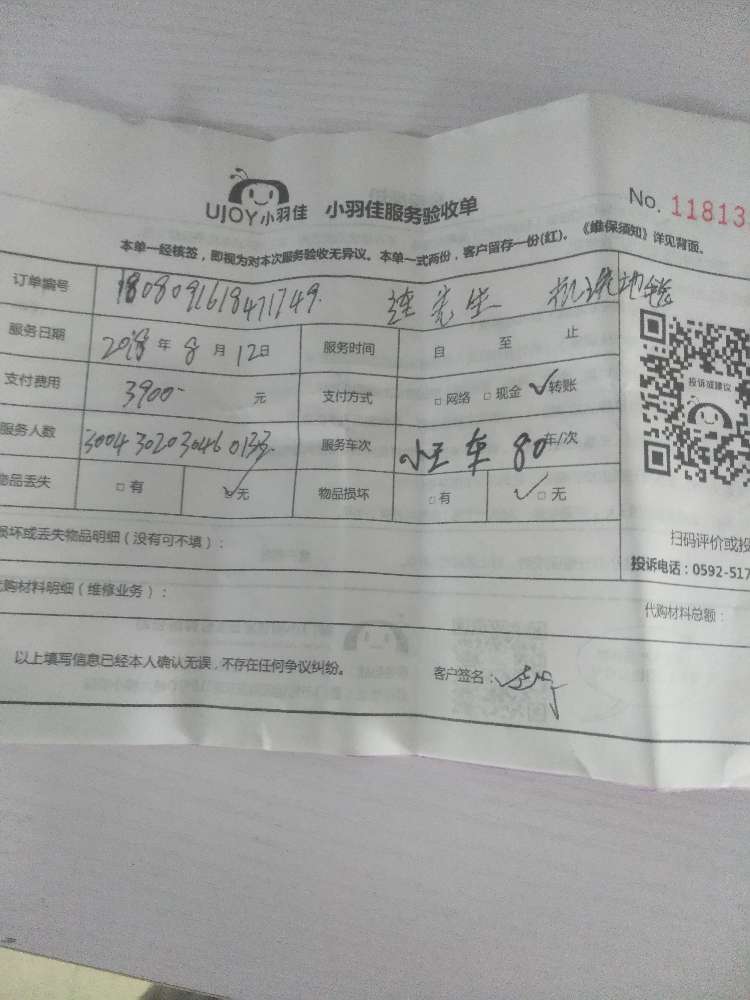 UJOY小羽佳 小羽佳服务验收单
No. 11813
本单一经核签，即视为对本次服务验收无异议。本单一式两份，客户留存一份(红)。《维保须知》详见背面。
订单编号 1808091618471749. 连先生
服务日期 2018年8月12日 服务时间 自 至 止
支付费用 3900- 元 支付方式 □网络 □现金 ✓转账
服务人数 3004 3020 3046 0133. 服务车次 小王车 80 车/次
物品丢失 □有 ✓无 物品损坏 □有 ✓□无
投诉或建议
损坏或丢失物品明细（没有可不填）：
扫码评价或投
投诉电话：0592-517
代购材料明细（维修业务）：
代购材料总额：
以上填写信息已经本人确认无误，不存在任何争议纠纷。 客户签名：